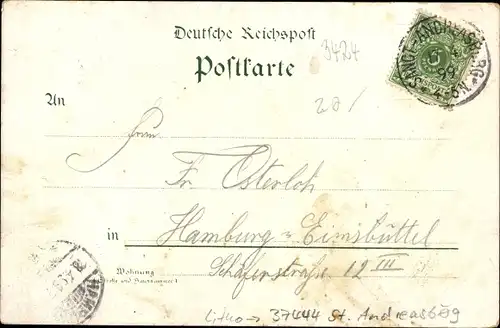 Deutsche Reichspost
Postkarte
3424
SANCT-ANDREASBERG
99
An
Fr. Osterloh
in Hamburg = Eimsbüttel
Wohnung
(Straße und Hausnummer)
Schäferstraße 12 III
Litho → 37444 St. Andreasberg